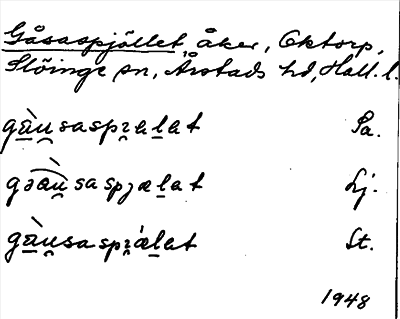 Gåsaspjället, åker, Oktorp,
Slöinge sn, Årstads hd, Hall. l.
gàu̯saspɪalat Sa.
gəàu̯saspɪalat Lj.
gàu̯saspɪálat St.
1948